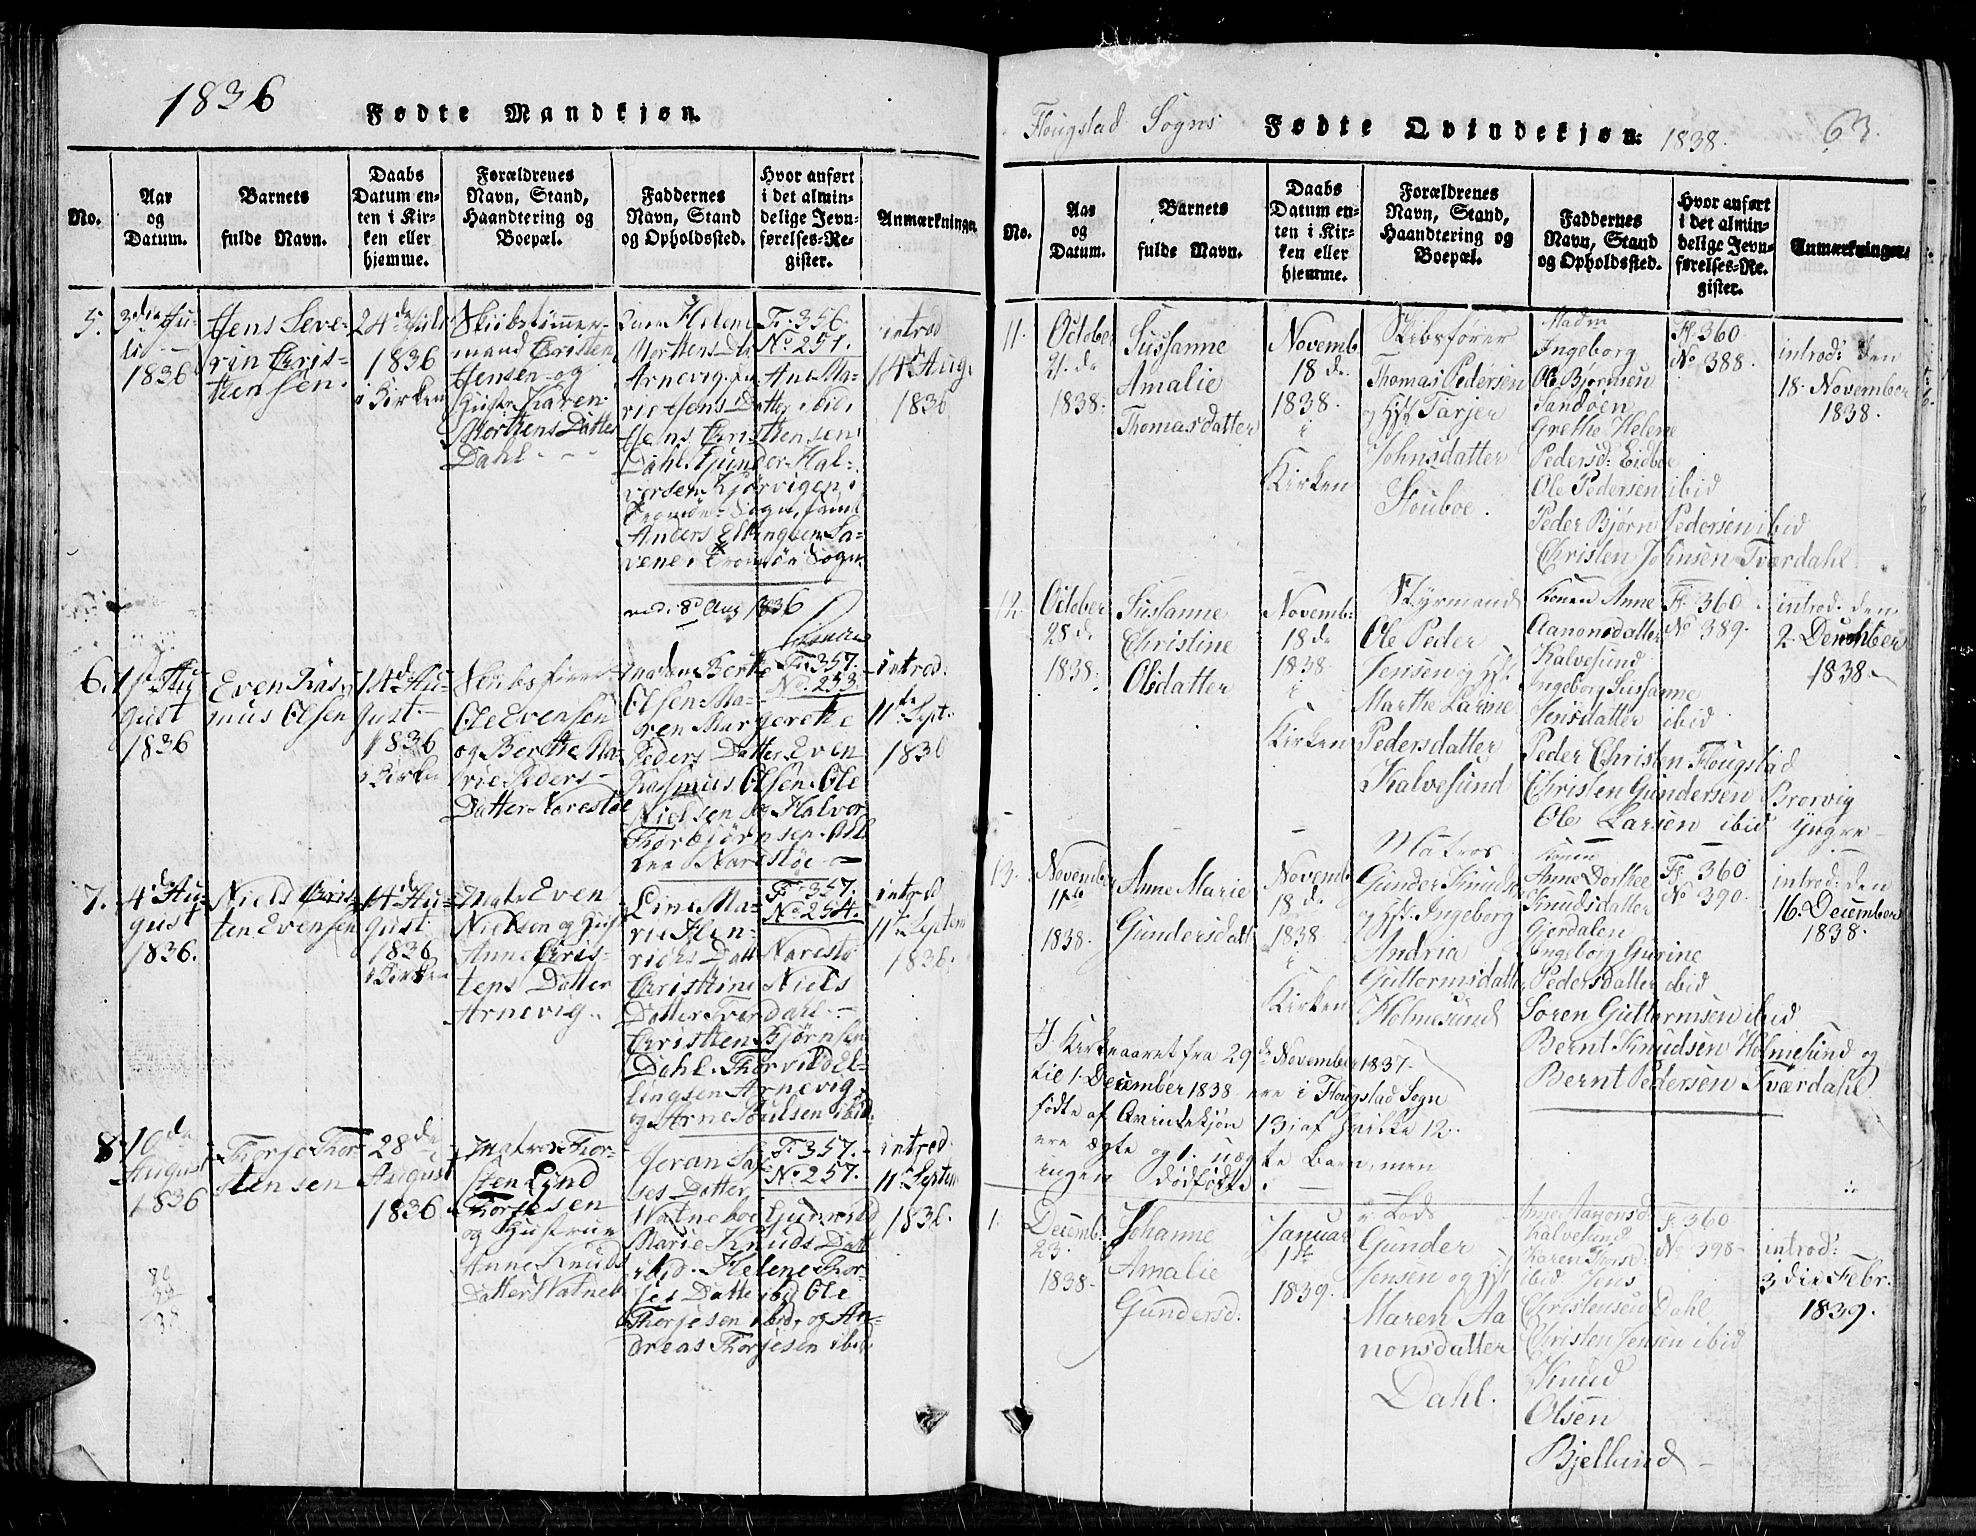 1836
Fødte Mandkjøn.
No.
Aar
og
Datum.
Barnets
fulde Navn.
Daabs
Datum en-
ten i Kir-
ken eller
hjemme.
Forældrenes
Navn, Stand,
Haandtering og
Boepæl.
Faddernes
Navn, Stand
og Opholdssted.
Hvor anført
i det almin-
delige Jevn-
førelses-Re-
gister.
Anmærkninger
5.
3die Ju-
li
1836
Jens Seve-
rin Chris-
tensen.
24de Juli
1836
i Kirken
Skibstømmer-
mand Christen
Jensen og
Karen
Morthens Datter
Dahl
Helene
Morthens
Arnevig
Ane Ma-
rie Jens Datter ibid
Jens Christensen
Dahl Gunder Hal-
versen Kjørvigen i
Tromøe Sogn, samt
Anders Ellingsen Sa-
vene i Tromøe Sogn
8d Aug 1836
Fr. 356.
No. 251.
introd
14de Aug.
1836
6.
1ste Au-
gust
1836
Even Ras-
mus Olsen
14de Au-
gust
1836
i Kirken
Skibsfører
Ole Evensen
og Berthe Ma-
rie Peders
Datter Narestøe
Madam Berthe
Olsen Ma-
ren Margrethe
Peders Datter Even
Rasmus Olsen Ole
Nielsen og Halvor
Thorbjørnsen
Narestøe
Fr. 357.
No. 253.
introd.
11te Sept.
1836
7.
4de Au-
gust
1836.
Niels Chris-
ten Evensen
14de Au-
gust
1836
i Kirken
Mats Even
Nielsen og
Anne Chris-
tens Datter
Arnevig
Line Ma-
rie Hen-
richs Datt Narestø
Christine Niels
Datter Tverdahl
Christen Bjørnsen
Dahl Thorvild El-
lingsen Arnevig
og Arne Poulsen ibid.
Fr. 357.
No. 254.
introd
11te Septem
1836.
8
10de
August
1836
Thorje Thor-
stensen
28de
August
1836
Matros Thor-
sten Lind
Thorjesen
og Hustrue
Anne Knuds
Datter Watneb
Joran
ses Datter
Watneboe Gunnild
Marie Knuds Datt
ibid. Helene Thor-
jes Datte ibid Ole
Thorjesen ibid, og An-
dreas Thorjesen ibid
Fr. 357.
No. 257.
introd.
11te Septem
1836.
Flougstad Sogns
Fødte Qvindekjøn.
1838.
63.
No.
Aar
og
Datum.
Barnets
fulde Navn.
Daabs
Datum en-
ten i Kir-
ken eller
hjemme.
Forældrenes
Navn, Stand,
Haandtering og
Boepæl.
Faddernes
Navn, Stand
og Opholdssted.
Hvor anført
i det almin-
delige Jevn-
førelses-Re-
gister.
Anmærkninger.
11.
October
21. de
1838.
Sussanne
Amalie
Thomasdatter
Novemb.
18 de
1838.
i
Kirken
Skibsfører
Thomas Pedersen
og Hst. Tarjer
Johnsdatter
Stouboe.
Madm
Ingeborg
Ole Bjørnsen
Sandøen
Grethe Helene
Pedersd: Eidboe
Ole Pedersen ibid
Peder Bjørn Pedersen ibid
Christen Johnsen Tværdahl.
Fr. 360
No. 388.
introd: den
18. November
1838.
12.
October
25 de
1838.
Sussanne
Christine
Olsdatter
Novemb:
18 de
1838
i
Kirken
Styrmand
Ole Peder
Jensen og Hst.
Marthe Larine
Pedersdatter
Kalvesund
Konen Anne
Aanonsdatter
Kalvesund
Ingeborg Sussanne
Jensdatter ibid
Peder Christen Flougstad
Christen Gundersen Brorvig
Ole Larsen ibid Yngre
Fr. 360.
No 389.
introd. den
2. December
1838
13.
November
11te
1838.
Anne Marie
Gundersdatt
Novemb
18 de
1838
i
Kirken
Matros
Gunder Knuds
og Hst. Ingeborg
Andria
Guttormsdatter
Holmesund
Konen
Anne Dorthee
Knudsdatter
Gjerdalen
Ingeborg Gurine
Pedersdatter ibid
Søren Guttormsen ibid
Bernt Knudsen Holmesund og
Bernt Pedersen Tværdahl
Fr. 360
No 390.
introd: den
16. December
1838.
I Kirkeaaret fra 29de November 1837
til 1. December 1838 ere i Flougstad Sogn
fødte af Qvindekjøn 13; af hvilke 12
ere ægte og 1. uægte Barn, men
ingen dødfødte.
1.
Decemb.
23.
1838
Johanne
Amalie
Gundersd.
Januar
1ste
1839.
Lods
Gunder
Jensen og Hst
Maren Aa
nonsdatter
Dahl.
Anne Aanonsd
Kalvesund
Karen Thorsd
ibid Jens
Christensen Dahl
Christen Jensen ibid
Knud
Olsen
Bjellund
Fr. 360
No 398
introd:
3die Febr.
1839.